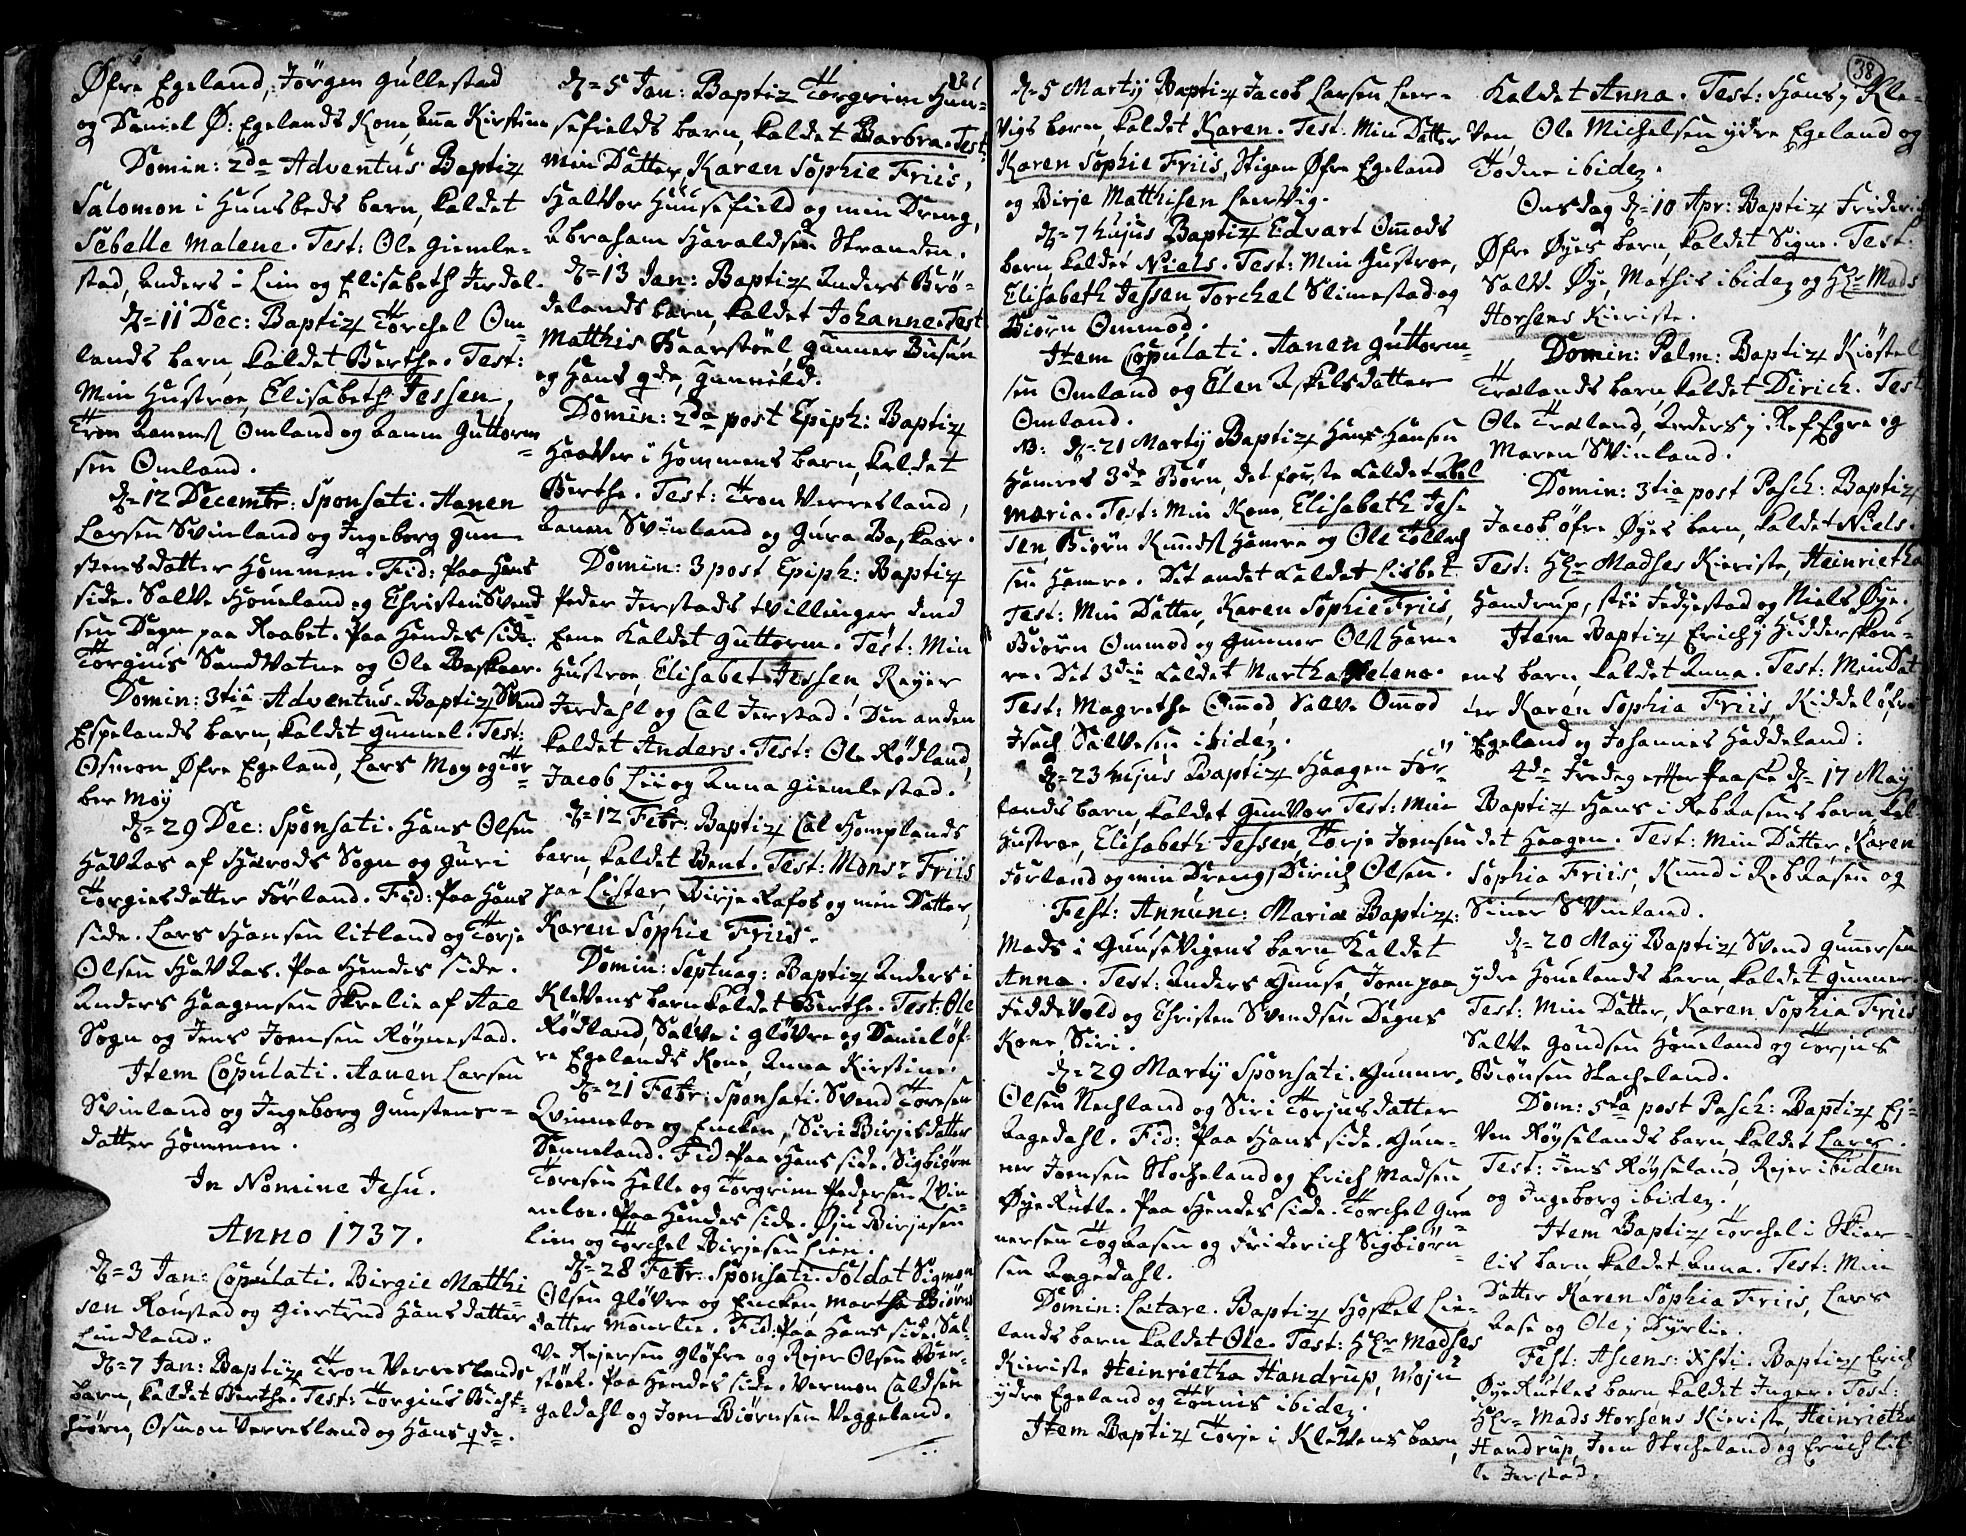 Øfre Egeland, Jörgen Gullestad
og Daniel Ø: Egelands Kone Anna Kirstine
Domin: 2da Adventus Baptiz
Salomon i Hunsbeds barn, kaldet
Sebelle Malene. Test: Ole Giemle-
stad, Anders i Lien og Elisabeth Jerdal.
d. 11 Dec: Baptiz Torchel Om-
lands barn, kaldet Berthe. Test:
Min Hustroe, Elisabeth Jessen,
Tron Aanens. Omland og Aanen Guttorm-
sen Omland.
d. 12 Decembr: Sponsati. Aanen
Larsen Svinland og Ingeborg Gun-
stensdatter Hommen. Fid: Paa Hans
side. Salve Houeland og Christen Svend-
sen Degn paa Raabet. Paa Hendes side.
Torgius Sandvatne og Ole Baskaar.
Domin: 3tia Adventus. Baptiz Svend
Espelands barn, kaldet Gunnel. Test:
Osmon Øfre Egeland, Lars Moy og Tor-
ber Møy
d. 29 Dec: Sponsati. Hans Olsen
Havaas af Herods Sogn og Guri
Torgiesdatter Förland. Fid: Paa Hans
side. Lars Hansen Litland og Torje
Olsen Havaas. Paa Hendes side.
Anders Haagensen Skrelie af Aae
Sogn og Jens Joensen Røynestad.
Item Copulati. Aanen Larsen
Svinland og Ingeborg Gunstens-
datter Hommen.
In Nomine Jesu.
Anno 1737.
d. 3 Jan: Copulati. Birgie Matthi-
sen Raustad og Giertrud Hans datter
Lindland.
d. 7 Jan: Baptiz Tron Verreslands
barn, kaldet Berthe. Test: Torgius
Osmon Verresland og Hans qde.
d. 5 Jan: Baptiz Torgrim Huu-
sefields barn, kaldet Barbra. Test:
Min Datter, Karen Sophie Friis,
Halvor Huusefield og min Dreng,
Abraham Haraldsen Stranden.
d. 13 Jan: Baptiz Anders Brö-
delands barn, kaldet Johanne. Test
Matthis Haarstöel Gunner Busun
og Hans qde, Gunnild.
Domin: 2da post Epiph: Baptiz
Haaver i Hommens barn, kaldet
Berthe. Test: Tron Verresland,
Aanen Svinland og Gura Baskaar.
Domin: 3 post Epiph: Baptiz
Peder Jerstads tvillinger, dend
Eene kaldet Guttorm. Test: Min
Hustroe, Elisabet Jessen Reyer
Jerdahl og Cal Jerstad. Den anden
kaldet Anders. Test: Ole Rödland,
Jacob Lie og Anna Giemlestad.
d. 12 Febr: Baptiz Cal Homplands
barn, kaldet Bent. Test: Monsr Friis
paa Lister, Birje Rafos og min Datter,
Karen Sophie Friis.
Domin: Septuag: Baptiz Anders i
Klevens barn kaldet Berthe. Test: Ole
Rödland, Salve i Glövre og Daniel öf-
re Egelands Kone, Anna Kirstine.
d. 21 Febr: Sponsati. Svend Toresen
Qvinneloe og Encken, Siri Birjesdatter
Senneland. Fid: Paa Hans side. Sigbiörn
Toresen Helle og Torgrim Pedersen Qvin-
neloe. Paa Hendes side. Öju Birjesen
Lien og Torchel Birjesen Lien.
d. 28 Febr: Sponsati. Soldat Sigmon
Olsen Glövre og Encken Martha Biörns
datter Mourlie. Fid: Paa Hans side. Sal-
ve Rejersen Glöfre og Rejer Olsen
Paa Hendes side. Vermon Caldsen
Galdahl og Joen Biörnsen Veggeland.
38
d. 5 Martij Baptiz Jacob Larsen Leer-
vigs barn, kaldet Karen. Test: Min Datter
Karen Sophie Friis, Stigen Øfre Egeland
og Birje Matthisen Leervig.
d. 7 hujus Baptiz Edvart Ommods
barn, kaldet Niels. Test: Min Hustroe,
Elisabeth Jessen Torchel Slimestad og
Biørn Ommod.
Item Copulati. Aanen Guttorm-
sen Omland og Elen Askelsdatter
Omland.
NB: d. 21 Martij Baptiz Hans Hansen
Hamres 3de Børn, det første kaldet Abel
Maria. Test: Min Kone, Elisabeth Jes-
sen, Biørn Knuds. Hamre og Ole Tollach-
sen Hamre. Det andet kaldet Lisbet
Test: Min Datter, Karen Sophie Friis,
Biörn Ommod og Gunner Ols. Ham-
re. Det 3die kaldet Martha Helena.
Test: Magrethe Ommod, Salve Ommod
Isach Salvesen ibidem.
d. 23 hujus Baptiz Haagen För-
lands barn, kaldet Gunvor Test: Min
Hustroe, Elisabeth Jessen, Torje Joensen
Forland og min Dreng, Dirich Olsen.
Fest: Annunc: Mariæ Baptiz:
Mads i Guusevigens barn kaldet
Anna. Test: Anders Guuse, Joen paa
Feddevold og Christen Svendsen Degns
Kone, Siri.
d. 29 Martij Sponsati. Gunner
Olsen Nechland og Siri Torjusdatter
Aagedahl. Fid: Paa Hans side. Gun-
ner Joensen Stocheland og Erich Madsen
ØyeRutle. Paa Hendes side. Torchel Gun-
nersen Togaasen og Friderich Sigbiörn-
sen Aagedahl.
Domin: Lætare. Baptiz Høskel Lin-
lands barn kaldet Ole. Test: Hr Madses
Kieriste Heinrietha Handrup, Moju
ydre Egeland og Tønnis ibidem.
Item Baptiz Torje i Klevens barn,
kaldet Anna. Test: Hans i Kle-
ven, Ole Michelsen ydre Egeland og
Todne ibidem.
Onsdag d. 10 Apr: Baptiz Friderich
Øfre Øyes barn, kaldet Signe. Test:
Salve Øye, Mathis ibidem og Hr Mads
Horsens Kieriste.
Domin: Palm: Baptiz Kiöstel
Trælands barn, kaldet Dirich. Test
Ole Træland, Anders i RefEgre og
Maren Svinland.
Domin: 3tia post Pasch: Baptiz
Jacob öfre Øyes barn, kaldet Niels.
Test: Hr Madses Kieriste, Heinrietha
Handrup, Fedjestad og Niels Øye.
Item Baptiz Erich i Hidderskou-
ens barn, kaldet Anna. Test: Min Dat-
ter Karen Sophia Friis, Kiddel öfre
Egeland og Johannes Haddeland.
4de Fredag efter Paaske d. 17 May
Baptiz Hans i Rebaasens barn, kal-
det Haagen. Test: Min Datter, Karen
Sophia Friis, Knud i Rebaasen og
Siner Svinland.
d. 20 May Baptiz Svend Gunnersen
ydre Houelands barn, kaldet Gunner.
Test: Min Datter, Karen Sophia Friis
Salve Gundsen Houeland og Torjus
Biönsen Stocheland.
Dom: 5ta post Pasch: Baptiz Ej-
ven Röyselands barn kaldet Lars.
Test: Jens Röyseland, Rejer ibidem
og Ingeborg ibidem.
Item Baptiz Torchel i Skier-
lis barn kaldet Anna. Test: Min
Datter Karen Sophia Friis, Lars
Aase og Ole i Dyrlie.
Fest: Ascens: Xsti. Baptiz Erich
ØyeRutles barn kaldet Inger. Test:
Hr Mads Horsens Kieriste, Heinrietha
Handrup, Joen Stocheland og Erich lil-
le Jerstad.